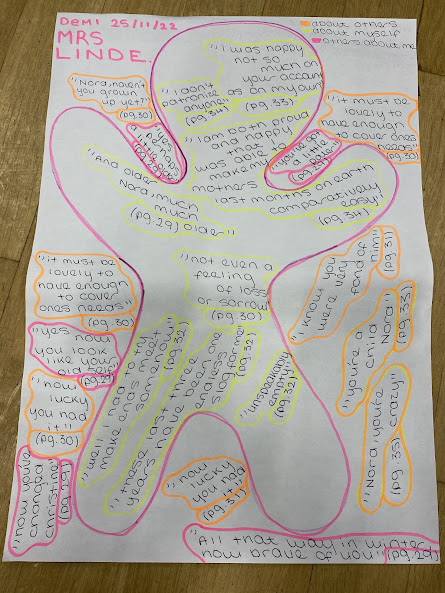 Demi 25/11/22
MRS
LINDE.
about others
about myself
others about me
"I was happy
not so
much on
your account
as on my own"
(pg. 33)
"I don't
patronize
anyone"
(pg. 34)
"Nora, haven't
you grown
up yet?"
(pg. 30)
"it must be
lovely to
have enough
to cover ones
needs"
(pg. 30)
"yes,
perhaps
"you've gone
a little
paler"
"I am both proud
and happy
that I
was able to
make me
mothers
last months on earth
comparatively
easy"
(pg. 34)
"And older
Nora, much
much
older"
(pg. 29)
"it must be
lovely to
have enough
to cover
ones needs"
(pg. 30)
"not even a
feeling
of loss
or sorrow"
(pg. 30)
"I know you
were very
fond of
him"
(pg. 31)
"yes now
you look
like your
old self"
(pg. 29)
"how
lucky
you had
it!"
(pg. 30)
"well I had to try
make ends meet
somehow"
"these last three
years have been one
endless
slog for me"
"unspeakably
empty"
(pg. 32)
"you're a
child
Nora"
(pg. 33)
"Nora you're
crazy"
(pg. 35)
"how you've
changed
Christine"
(pg. 29)
"how
lucky
you had
(pg. 31)
"All that way in winter
how brave of you"
(pg. 29)